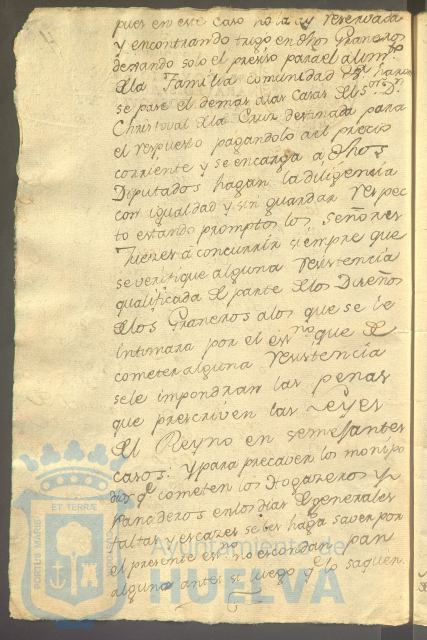 pues en este caso no la ay reservada
y encontrando trigo en dhos Graneros
dexando solo el preciso para el alimto
de la Familia comunidad &a haran
se pase el demas a las Casas del Sor Dn
Christoval de la Cruz destinada para
el respuesto pagandolo a el precio
corriente y se encarga a dhos
Diputados hagan la diligencia
con igualdad y sin guardar respec
to estando promptos los señores
Jueces a concurrir siempre que
se verifique alguna resistencia
qualificada de parte de los Dueños
de los Graneros a los que se le
intimara por el essno que de
cometer alguna resistencia
se le impondran las penas
que prescriven las Leyes
del Reyno en semejantes
casos: y para precaver los monipo
dios qe cometen los Hogazeros y
Panaderos en los dias de generales
faltas y escazes se les haga saver por
el presente essno no escondan pan
alguno antes si luego qe lo saquen
ET TERRÆ
PORTUS MARIS
CUSTODIA
Ayuntamiento de
HUELVA